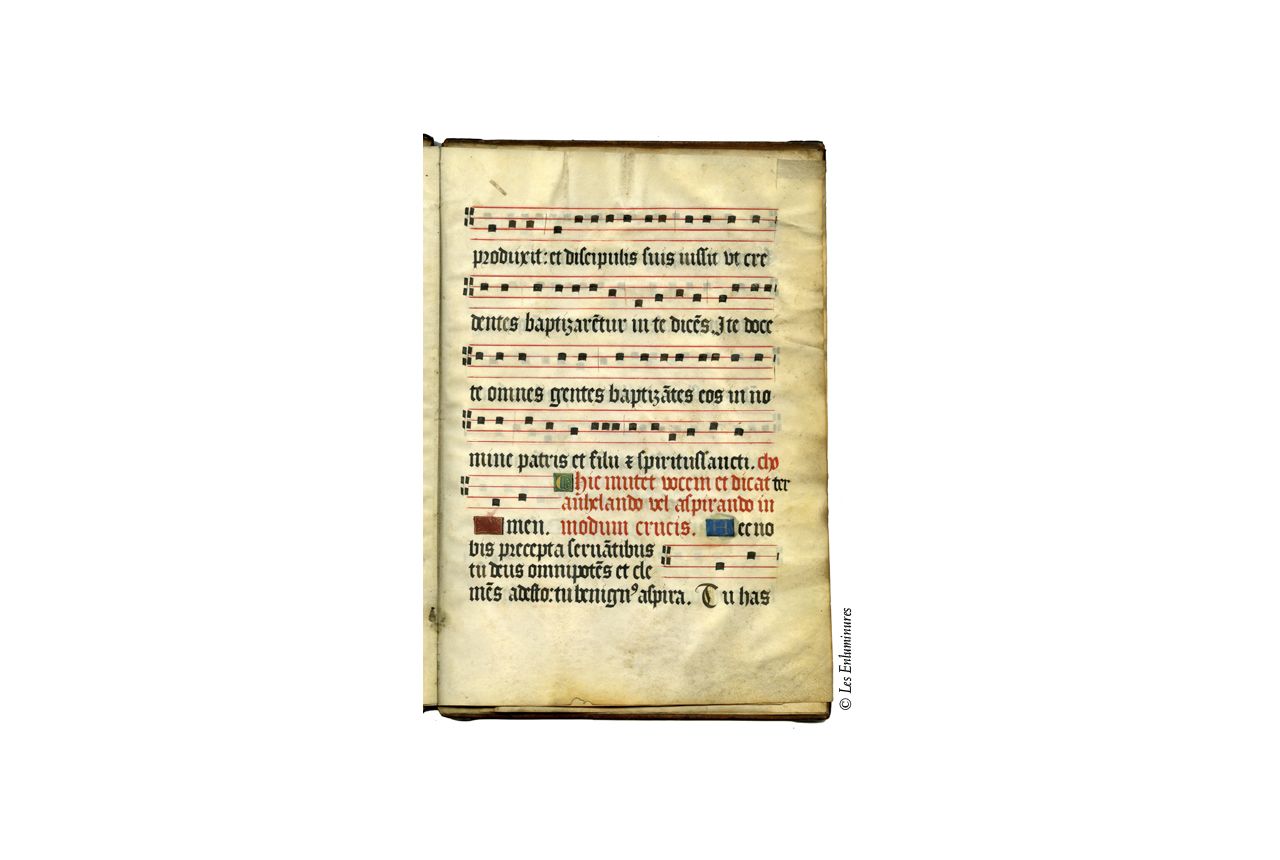 produxit: et discipulis suis iussit vt cre
dentes baptizarēt᷑ur in te dicēs. Ite doce
te omnes gentes baptizātes eos in no
mine patris et filii ⁊ spiritussancti. cho
hic mutet vocem et dicat ter
anhelando vel aspirando in
men. modum crucis. Hec no
bis precepta seruātibus
tu deus omnipotēs et cle
mēs adesto: tu benignꝰ aspira. Tu has
© Les Enluminures